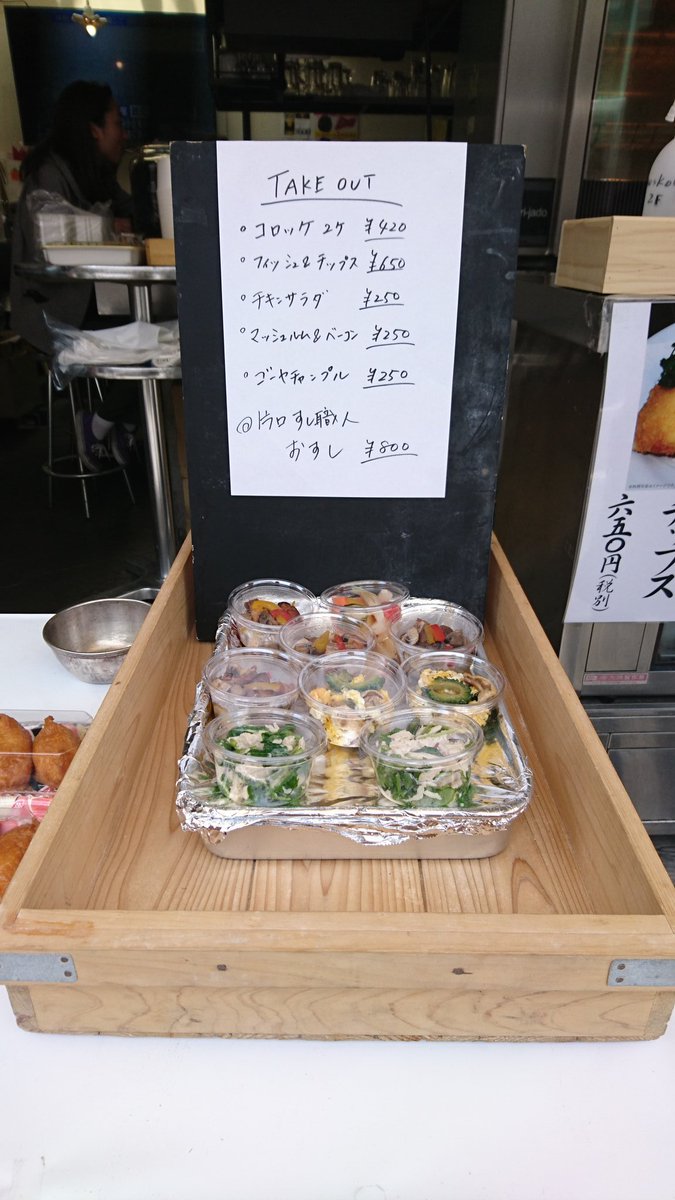 TAKE OUT
• コロッケ 2ケ ¥420
• フィッシュ&チップス ¥650
• チキンサラダ ¥250
• マッシュルム&ベーコン ¥250
• ゴーヤチャンプル ¥250
@片口すし職人
おすし ¥800
六五〇円(税別)
2F